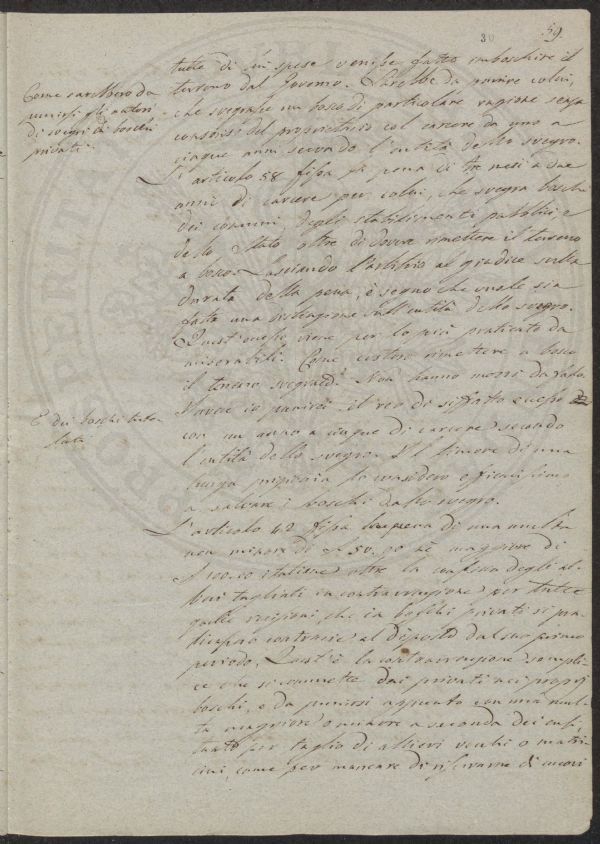 30
59
tutte di lui spese venisse fatto rimboschire il
terreno dal Governo. Sarebbe da punire colui,
che svegrasse un bosco di particolare ragione senza
consenso del proprietario col carcere da uno a
cinque anni secondo l'entità dello svegro.
Come sarebbero da
punirsi gli autori
di svegri di boschi
privati.
L'articolo 58 fissa la pena di tre mesi a due
anni di carcere per colui, che svegra boschi
dei comuni, degli stabilimenti pubblici, e
dello Stato oltre di dovere rimettere il terreno
a bosco. Lasciando l'arbitrio al giudice sulla
durata della pena, è segno che vuole sia
fatta una distinzione sull'entità dello svegro.
Quest'ultimo viene per lo più praticato da
miserabili. Come costoro rimettere a bosco
il terreno svegrato? Non hanno mezzi da farlo.
E dei boschi tute-
lati
con un anno a cinque di carcere secondo
l'entità dello svegro. Il timore di una
lunga prigionia
a salvare i boschi dallo svegro.
L'articolo 42 fissa la pena di una multa
non minore di 50.00 nè maggiore di
italiane oltre la confisca degli al-
beri tagliati in contravvenzione per tutte
quelle recisioni, che in boschi privati si pra-
dicassero contrarie al disposto dal suo primo
periodo. Quest'è la contravvenzione sempli-
ce che si commette dai privati nei propri
boschi, e da punirsi appunto con una mul-
ta maggiore o minore a seconda dei casi,
tanto per taglio di allievi vecchi o matri-
cini, come per mancare di riservarne di nuovi